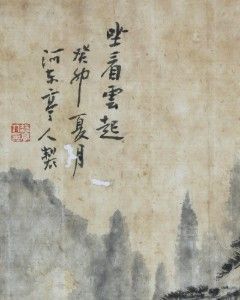 坐看雲起
癸卯夏月
河东亭人製